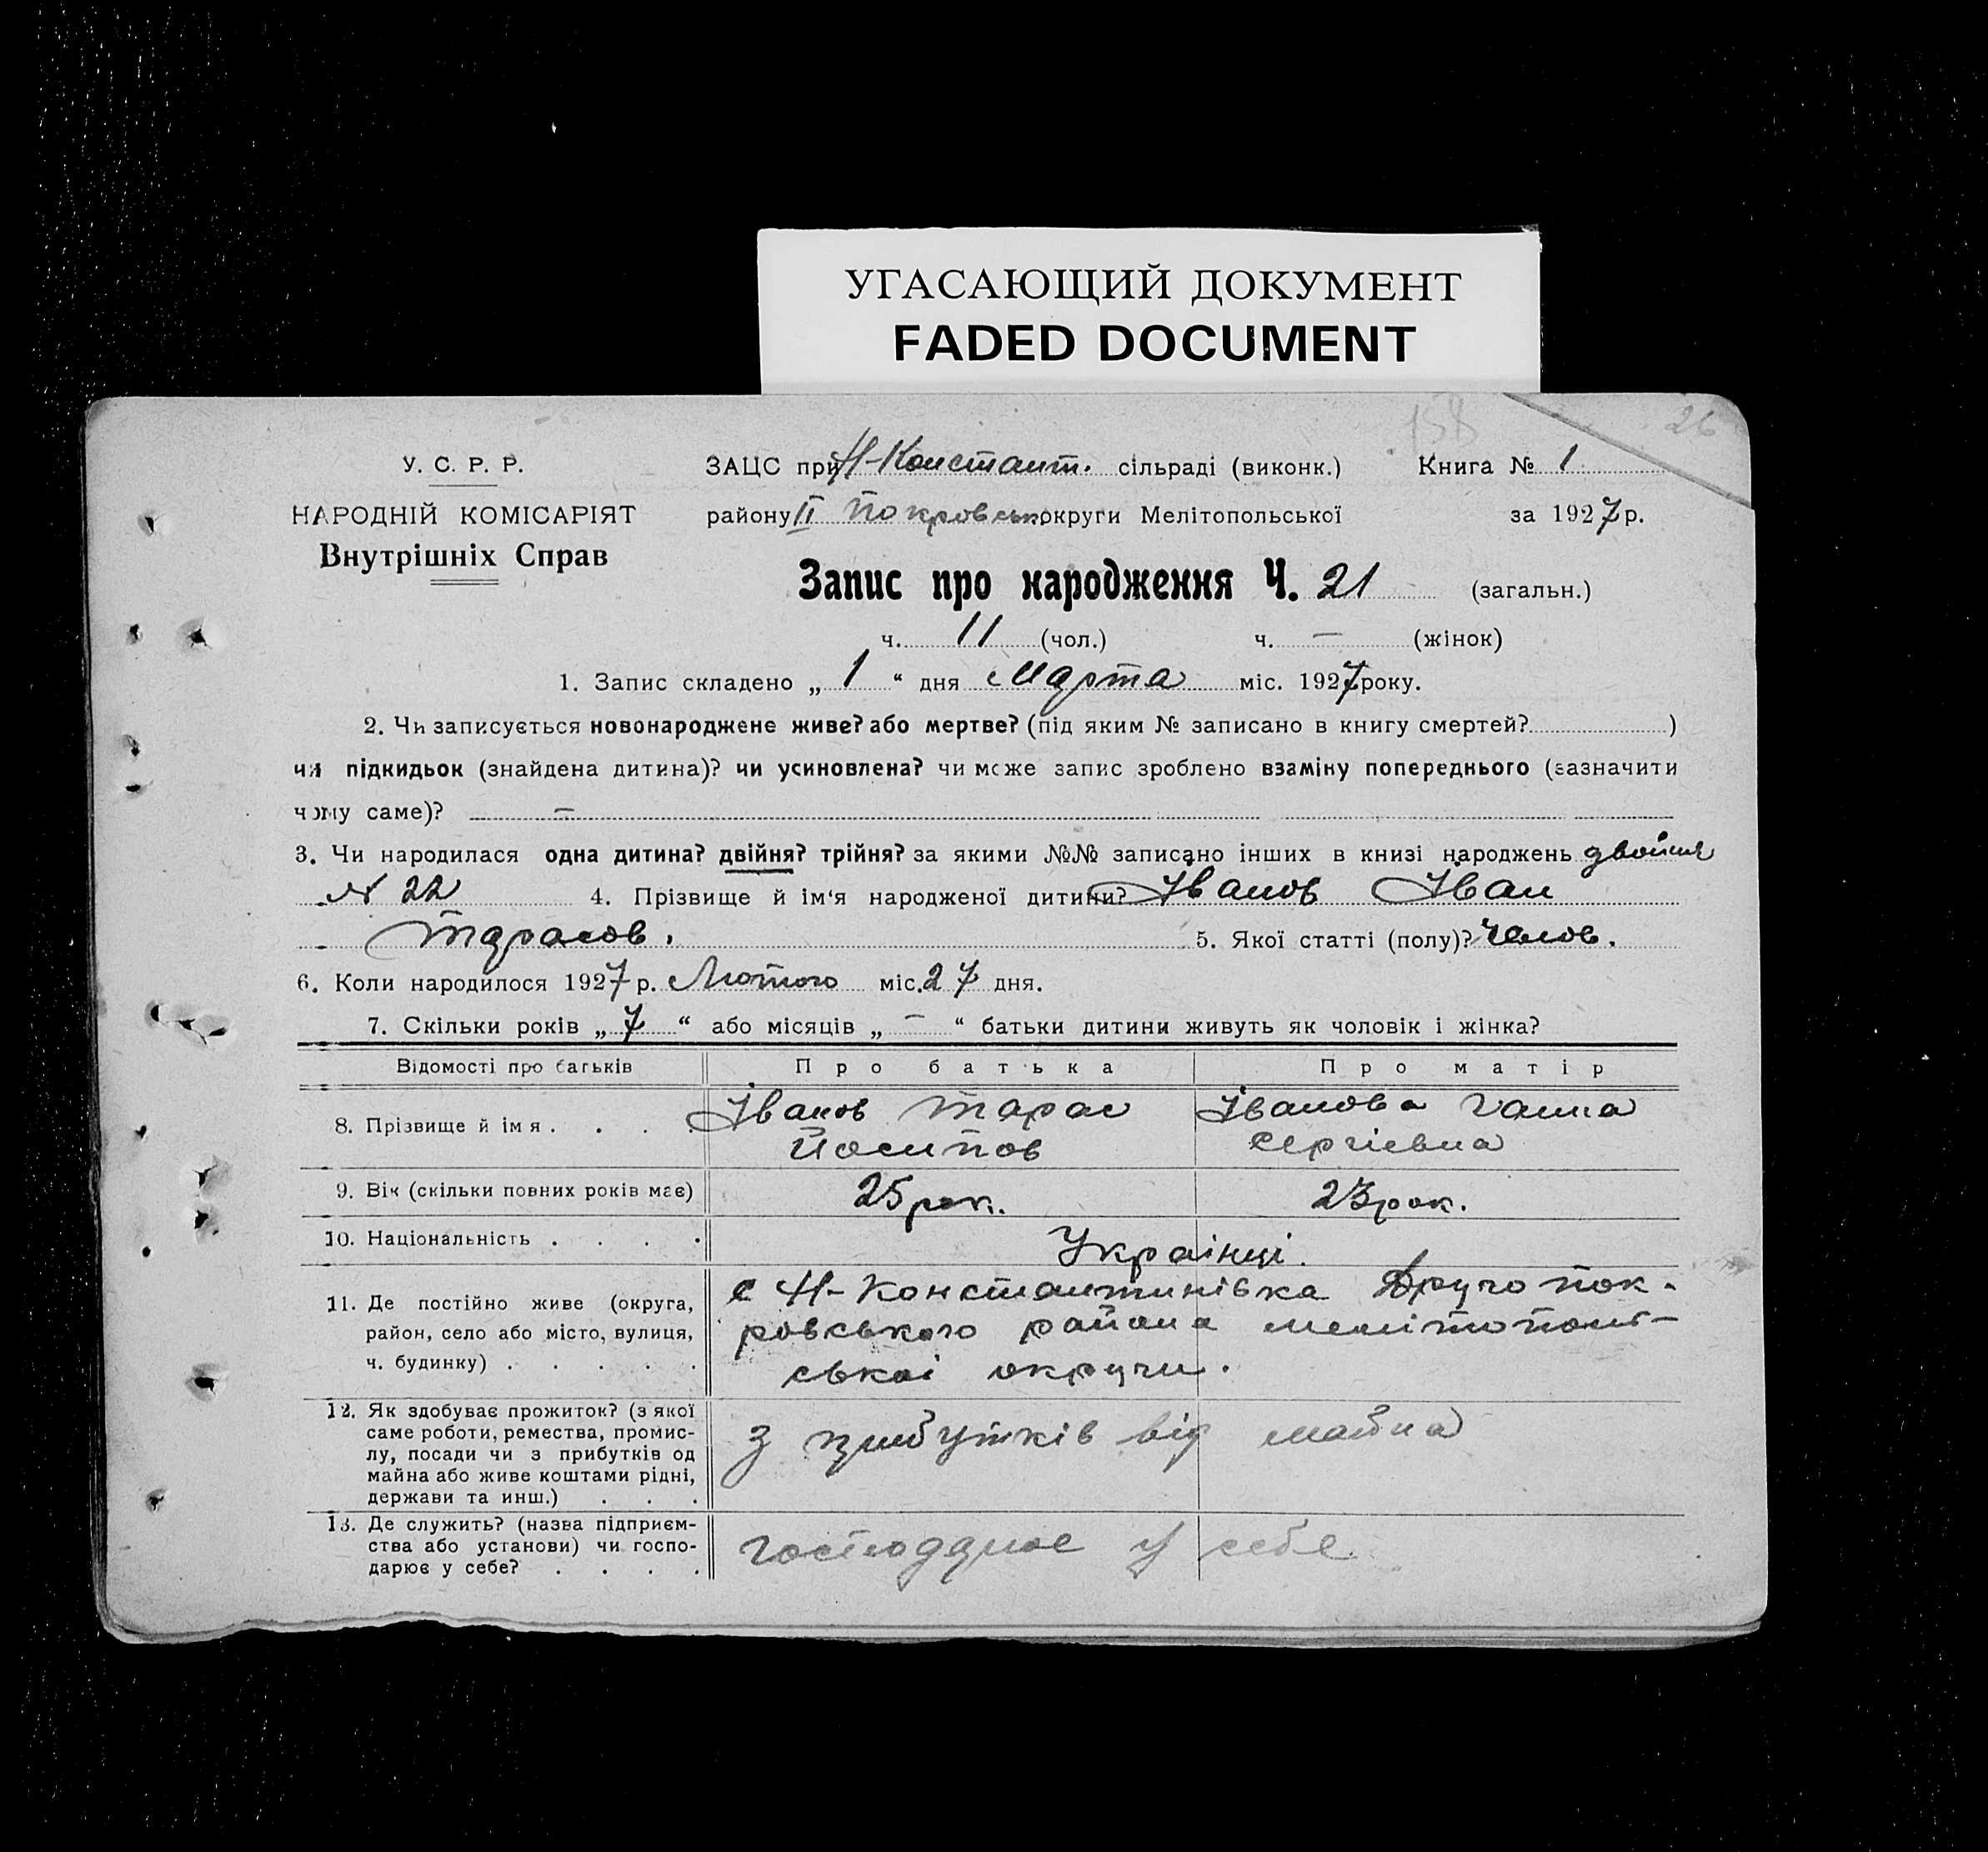 УГАСАЮЩИЙ ДОКУМЕНТ
FADED DOCUMENT
158 26
У. С. Р. Р.
НАРОДНІЙ КОМІСАРІЯТ
Внутрішніх Справ
ЗАЦС при Н-Констант. сільраді (виконк.) Книга № 1
району II Покровськ. округи Мелітопольської за 1927 р.
Запис про народження Ч. 21 (загальн.)
ч. 11 (чол.) ч. — (жінок)
1. Запис складено „ 1 “ дня Марта міс. 1927 року.
2. Чи записується новонароджене живе? або мертве? (під яким № записано в книгу смертей? )
чи підкидьок (знайдена дитина)? чи усиновлена? чи може запис зроблено взаміну попереднього (зазначити
чому саме)? —
3. Чи народилася одна дитина? двійня? трійня? за якими №№ записано інших в книзі народжень двойня
N 22 4. Прізвище й ім‘я народженої дитини? Іванов Іван
Тарасов. 5. Якої статті (полу)? чолов.
6. Коли народилося 1927 р. Лютого міс. 27 дня.
7. Скільки років „ 7 “ або місяців „ — “ батьки дитини живуть як чоловік і жінка?
Відомості про батьків Про батька Про матір
8. Прізвище й імя . . . . Іванов Тарас Іванова Ганна
Йосипов Сергіевна
9. Вік (скільки повних років має) 25 рок. 23 рок.
10. Національність . . . . Украінці.
11. Де постійно живе (округа, с Н-Константинівка Друго пок-
район, село або місто, вулиця, ровського района мелітополь-
ч. будинку) . . . . . ськоі округи.
12. Як здобуває прожиток? (з якої
саме роботи, ремества, промис-
лу, посади чи з прибутків од з прибутків від майна
майна або живе коштами рідні,
держави та инш.) . . .
13. Де служить? (назва підприєм-
ства або установи) чи госпо- господарює у себе
дарює у себе? . . . .